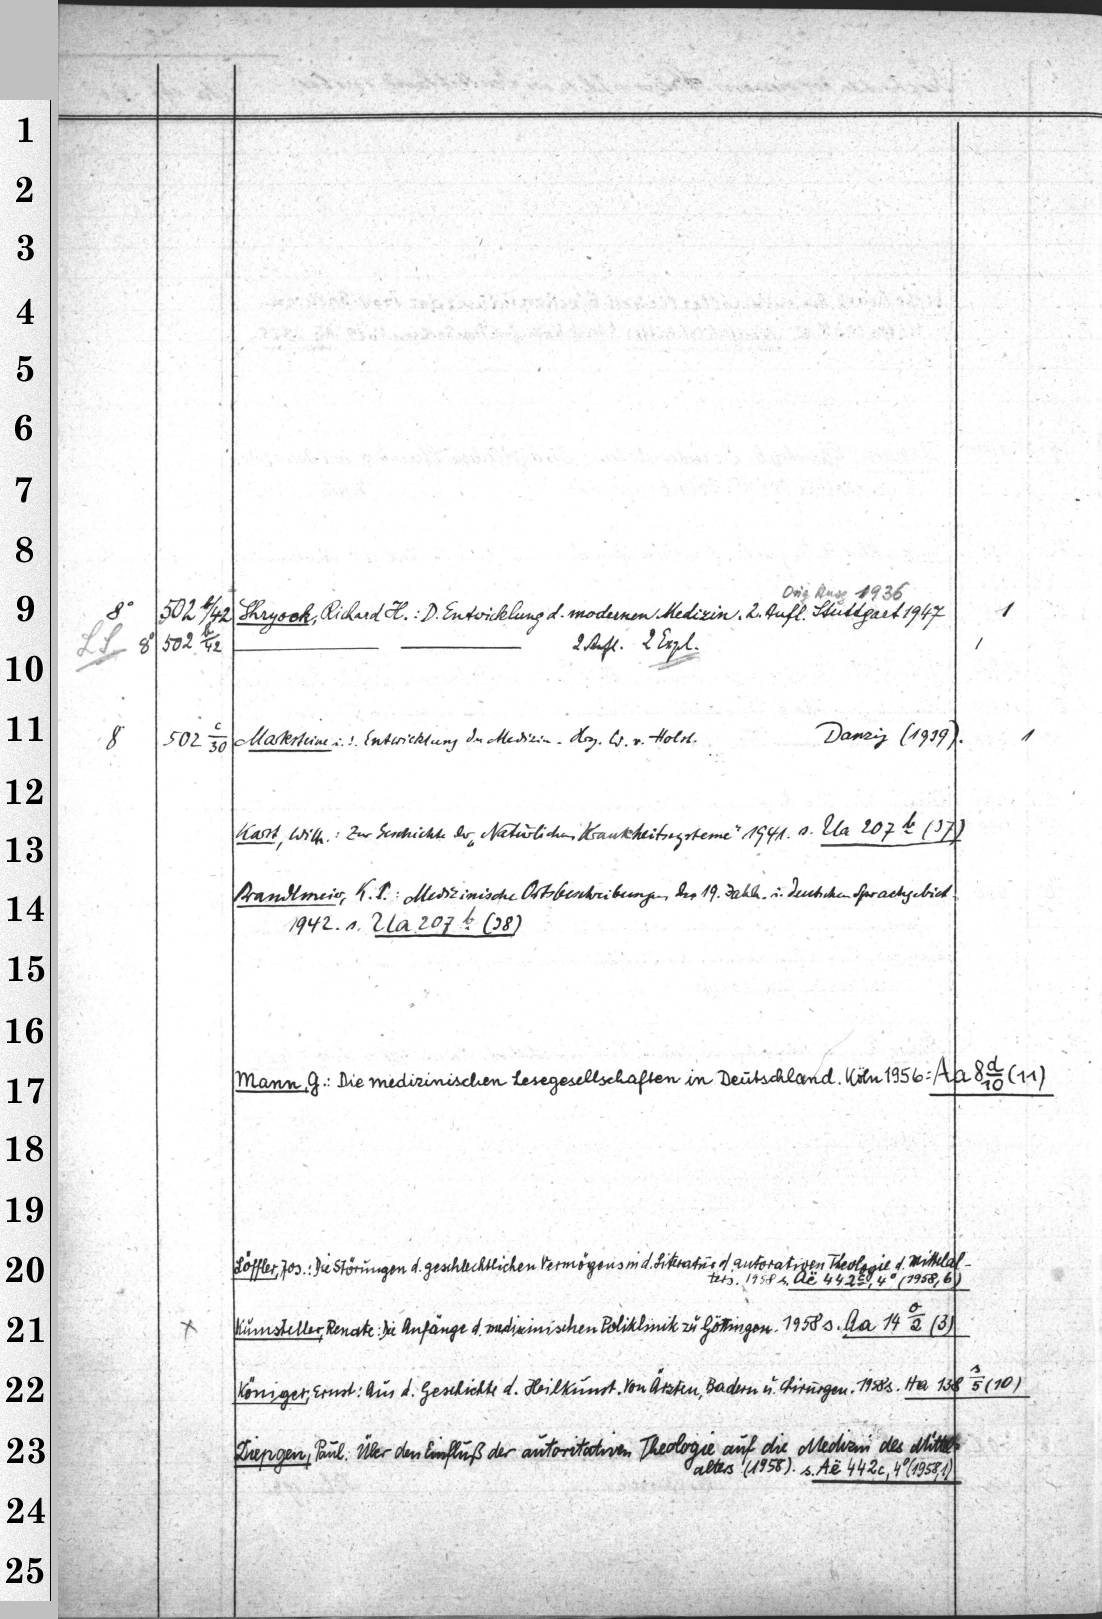 1
2
3
4
5
6
7
8
Orig. Ausg. 1936
9 8° 502 b/42 Shryock, Richard H.: D. Entwicklung d. modernen Medizin. 2. Aufl. Stuttgart 1947 1
LS 8° 502 b/42 2 Aufl. 2 Expl. 1
10
11 8 502 c/30 Marksteine i. d. Entwicklung der Medizin. Hrg. W. v. Holst. Danzig (1939). 1
12
13 Karst, Wilh.: Zur Geschichte der „Natürlichen Krankheitssysteme" 1941. s. Ua 207 b (37)
14 Brandlmeier, K. P.: Medizinische Ortsbeschreibungen des 19. Jahrh. i. deutschen Sprachgebiet.
1942. s. Ua 207 b (38)
15
16
17 Mann, G.: Die medizinischen Lesegesellschaften in Deutschland. Köln 1956: Aa 8 d/10 (11)
18
19
20 Löffler, Jos.: Die Störungen d. geschlechtlichen Vermögens in d. Literatur d. autorativen Theologie d. Mittelal-
ters. 1958 s. Aë 442 c, 4° (1958, 6)
21 x Kumsteller, Renate: Die Anfänge d. medizinischen Poliklinik zu Göttingen. 1958 s. Aa 14 o/2 (3)
22 Königer, Ernst: Aus d. Geschichte d. Heilkunst. Von Ärzten, Badern u. Chirurgen. 1958 s. Ha 138 s/5 (10)
23 Diepgen, Paul: Über den Einfluß der autoritativen Theologie auf die Medizin des Mittel-
alters (1958). s. Aë 442c, 4° (1958,1)
24
25